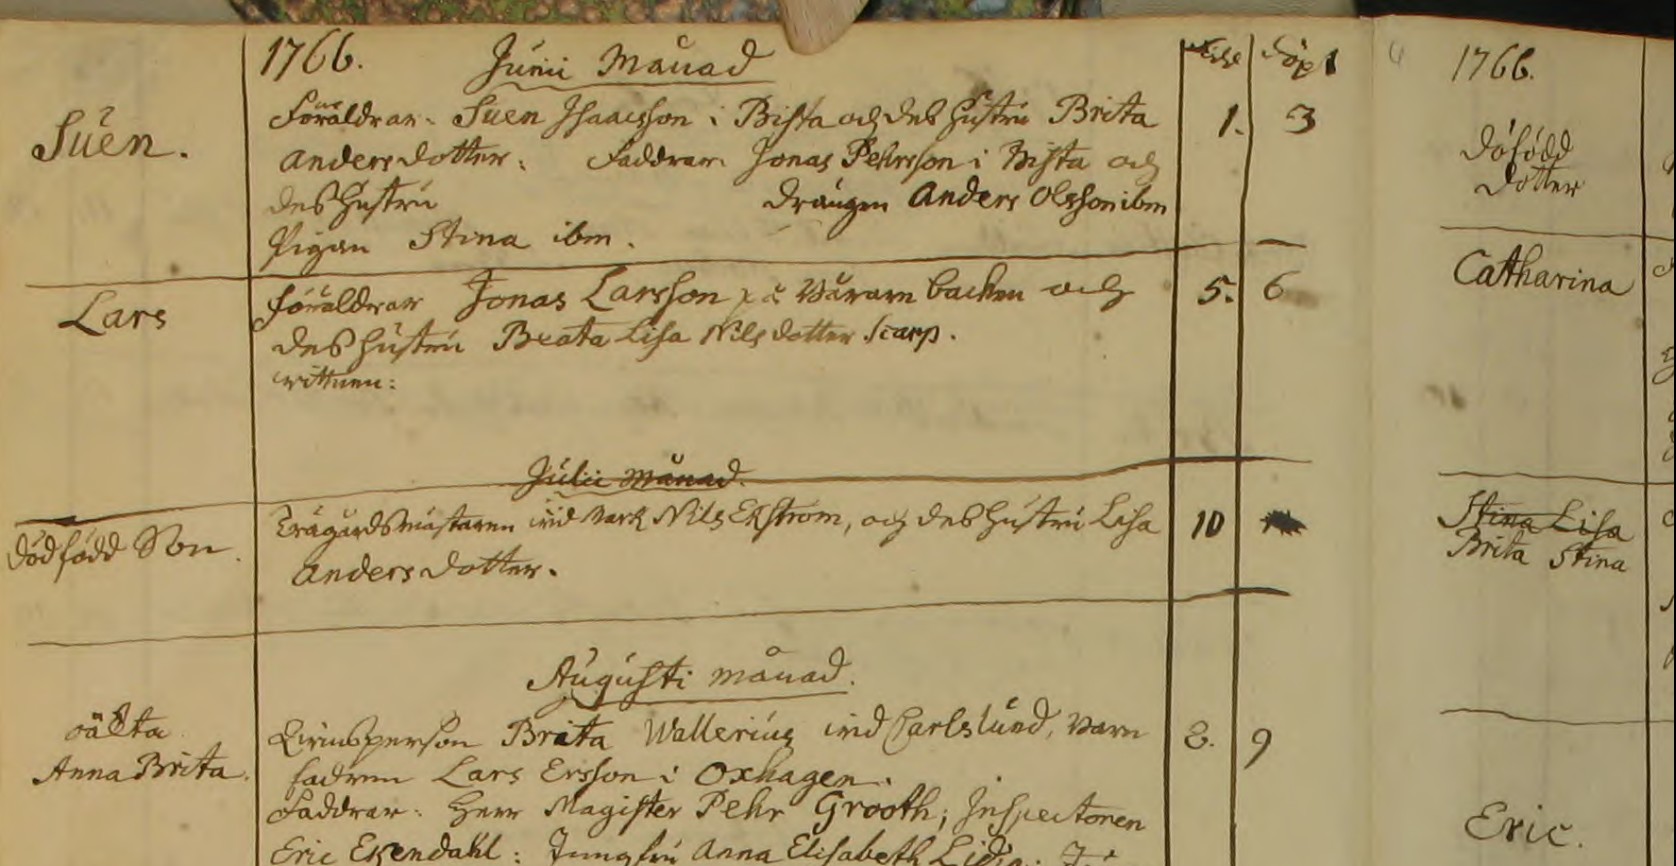 1766. Junii Månad född döpt
Suen.
Föräldrar. Suen Isaacsson i Bista och des hustru Brita 1. 3
Andersdotter: Faddrar Jonas Pehrsson i Bista och
des hustru drängen Anders Olsson ibm
Pigan Stina ibm.
Lars
föräldrar Jonas Larsson på backen och 5. 6
des hustru Beata Lisa Nilsdotter
Julii månad.
dödfödd Son.
Trägårdsmästaren wid Nils Ekström, och des hustru Lisa 10
Anders dotter.
Augusti månad.
oäkta
Anna Brita.
Qwinsperson Brita Wallerius wid Carlslund, barn 8. 9
fadren Lars Ersson i Oxhagen.
Faddrar: Herr Magister Pehr Grooth; Inspectoren
Eric Ekendahl: Jungfru Anna Elisabeth
1766.
döfödd
dotter
Catharina
Stina Lisa
Brita Stina
Eric.